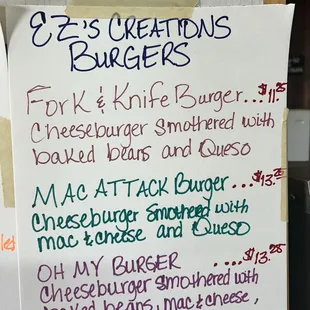 EZ'S CREATIONS
BURGERS
Fork & Knife Burger...$11.25
Cheeseburger Smothered with
baked beans and Queso
MAC ATTACK Burger...$13.25
Cheeseburger Smothered with
mac & cheese and Queso
OH MY BURGER ...$13.25
Cheeseburger Smothered with
baked beans, mac & cheese,